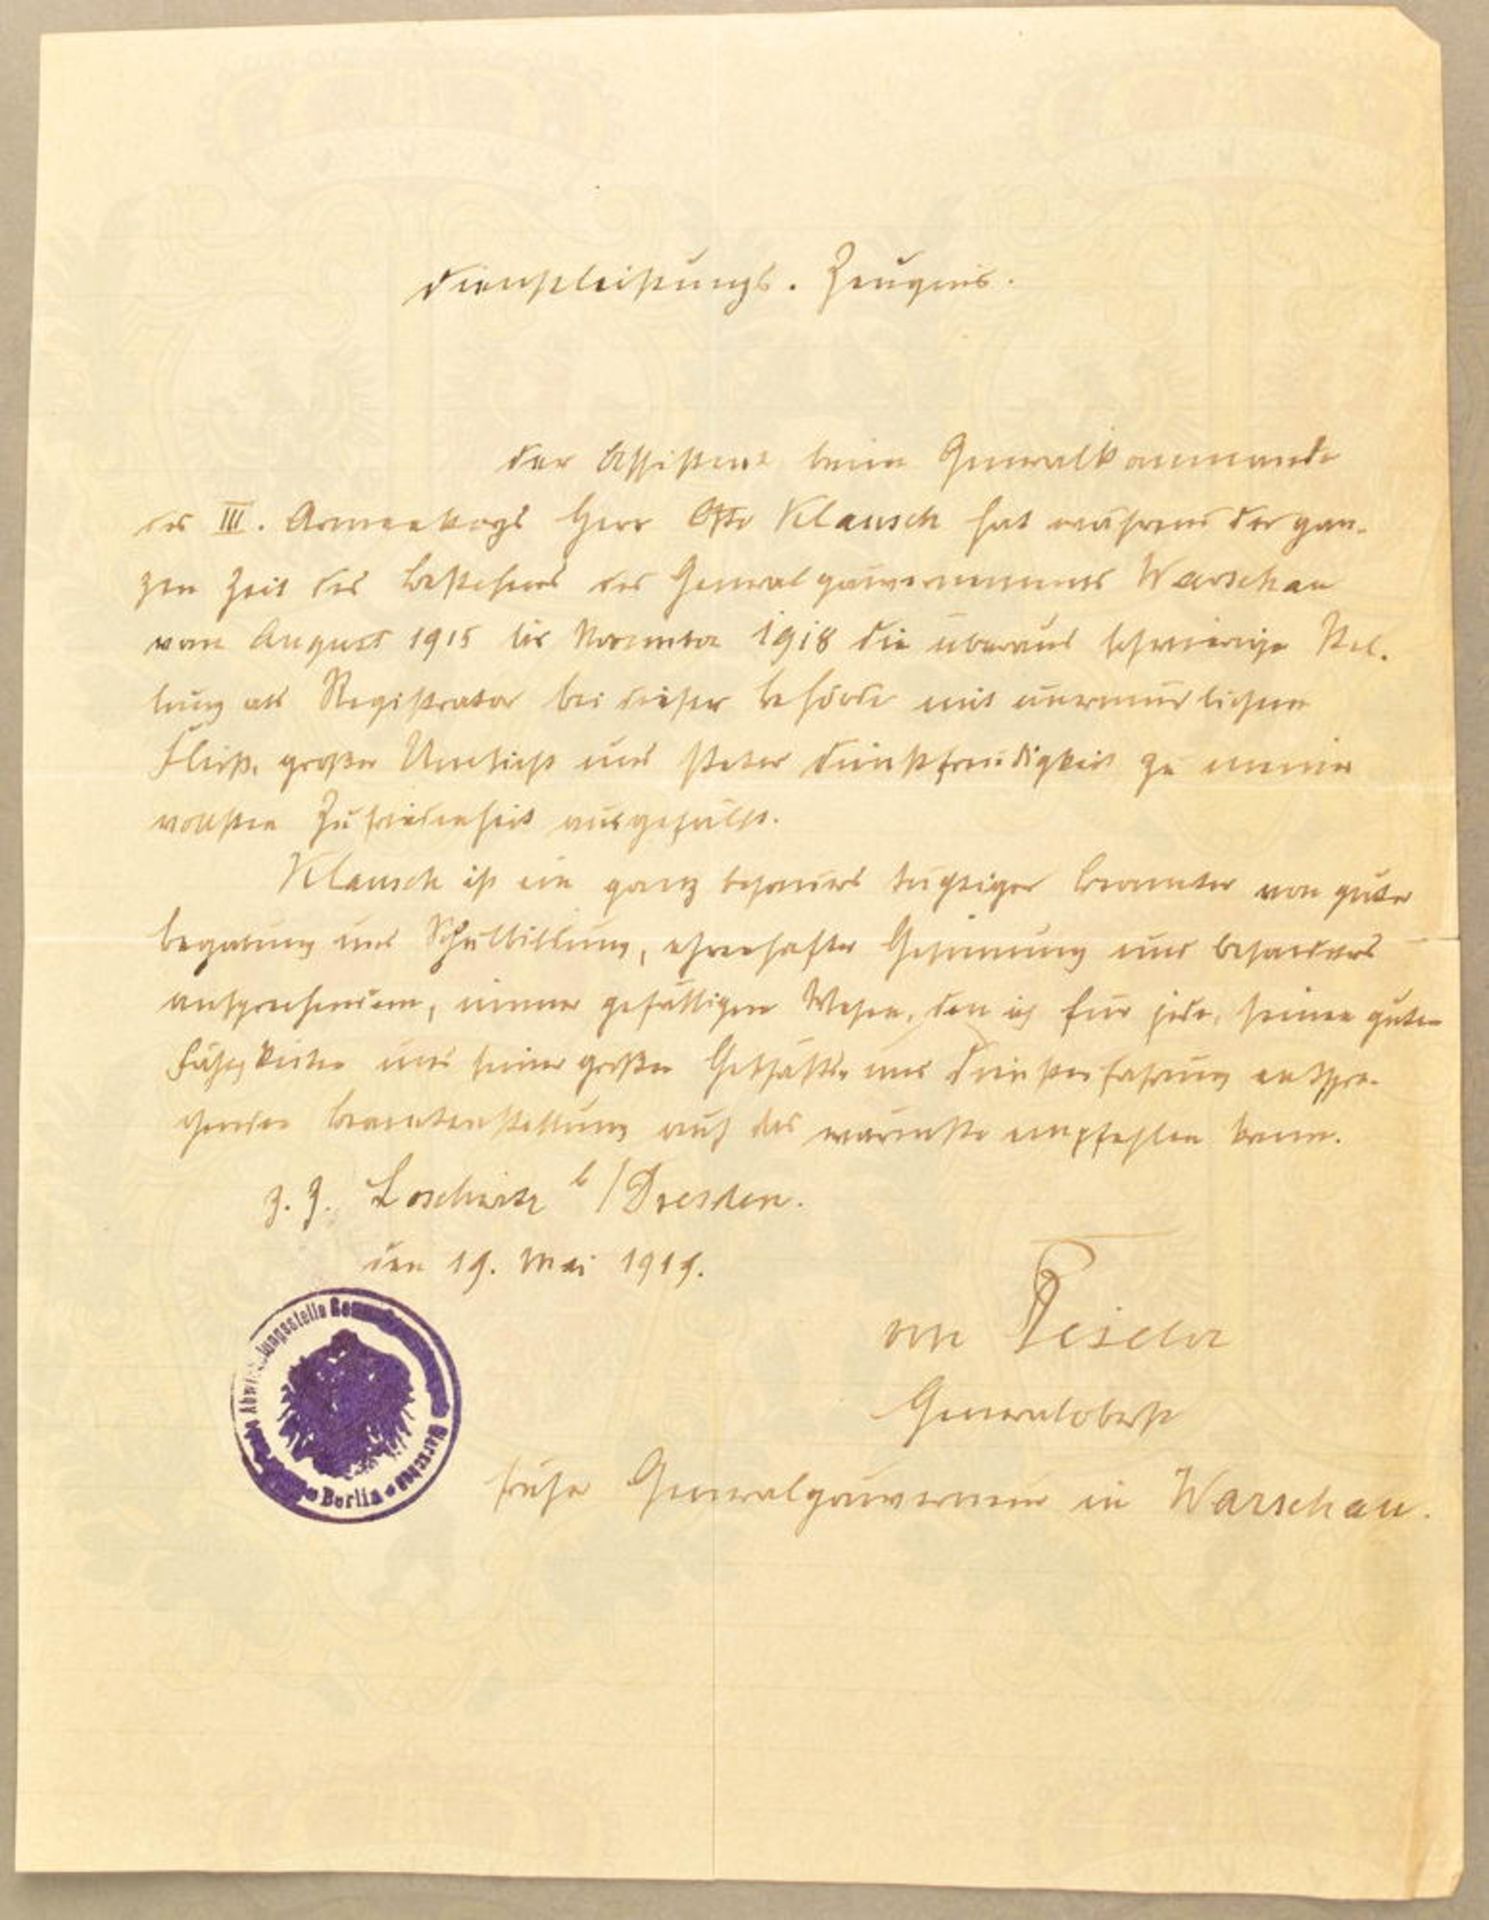 Dienstleistungs-Zeugnis.
Der Assistent beim Generalkommando
des III. Armeekorps Herr Otto Klausch hat während der gan-
zen Zeit des Bestehens des Generalgouvernements Warschau
vom August 1915 bis November 1918 die überaus schwierige Stel-
lung als Registrator bei dieser Behörde mit unermüdlichem
Fleiß, großer Umsicht und steter Dienstfreudigkeit zu meiner
vollsten Zufriedenheit ausgefüllt.
Klausch ist ein ganz besonders tüchtiger Beamter von guter
Begabung und Schulbildung, ehrenhafter Gesinnung und besonders
ansprechendem, immer gefälligem Wesen, den ich für jede, seinen guten
Fähigkeiten und seiner großen Geschäfts- und Diensterfahrung entspre-
chenden Beamtenstellung auf das wärmste empfehlen kann.
z. Z. Loschwitz b/Dresden.
den 19. Mai 1919.
von Beseler
Generaloberst
früher Generalgouverneur in Warschau.
Abwicklungsstelle Warschau
Berlin